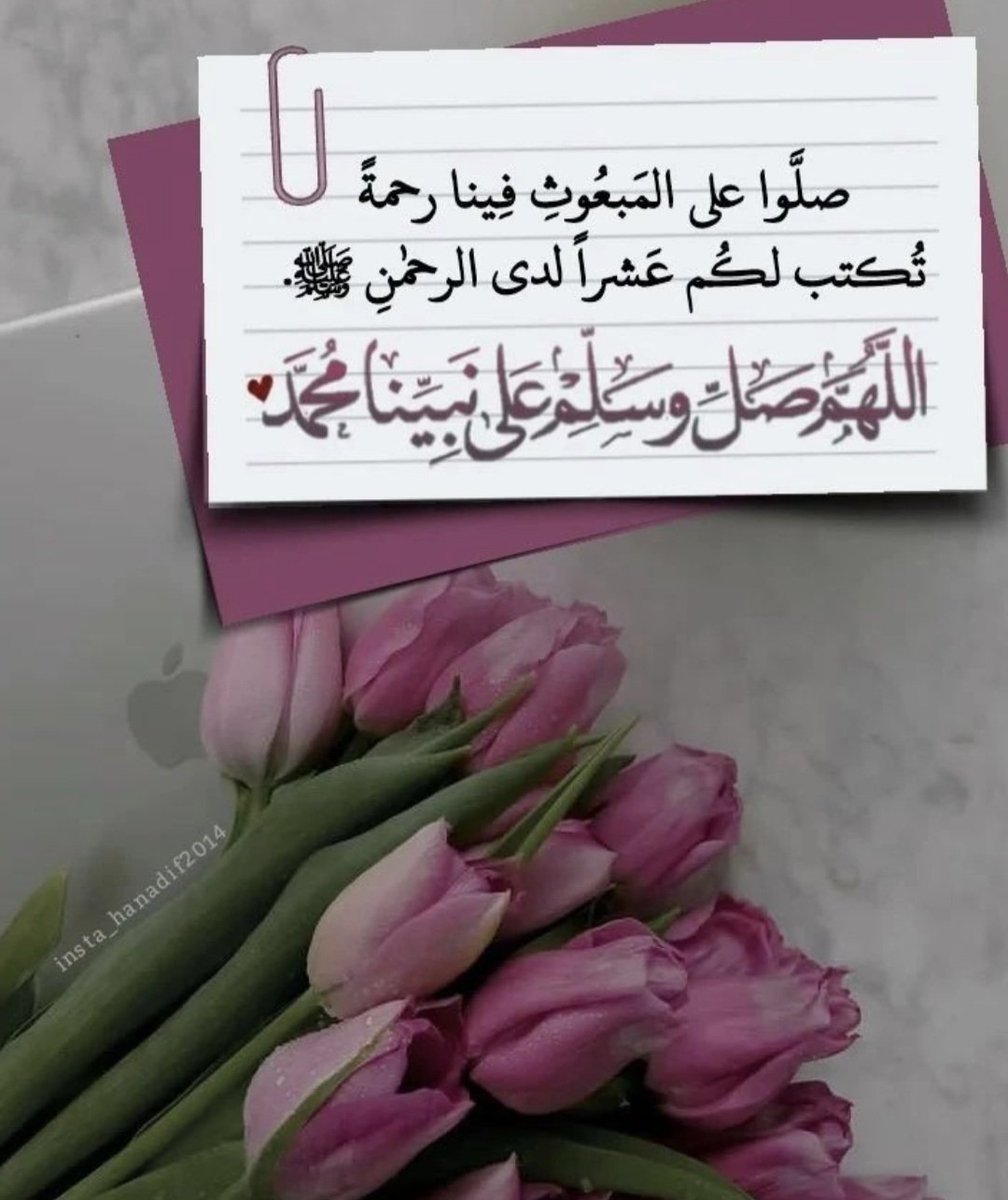 صلَّوا على المَبعُوثِ فِينا رحمةً
تُكتب لكُم عَشراً لدى الرحمٰنِ ﷺ.
اللَّهُمَّ صَلِّ وسَلِّمْ عَلى نَبيِّنا مُحمَّد
insta_hanadif2014